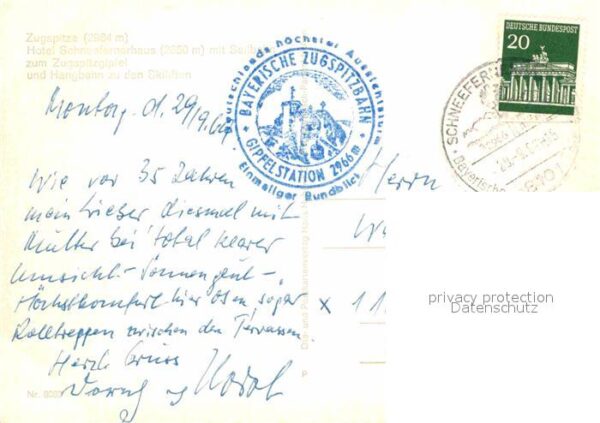 Zugspitze (2964 m)
Hotel Schneefernerhaus (2650 m) mit Seilbahn
zum Zugspitzgipfel
und Hangbahn zu den Skiliften
Montag d. 29/9.69
Deutschlands höchster Aussichtsturm
BAYERISCHE ZUGSPITZBAHN
GIPFELSTATION 2966 m
Einmaliger Rundblick
DEUTSCHE BUNDESPOST
20
SCHNEEFERN
Bayerische
Wie vor 35 Jahren
mein lieber diesmal mit
Mutter bei total klarer
Umsicht - Sonnenglut -
Höchstkomfort hier oben sogar
Rolltreppen zwischen den Terrassen.
Herzl. Gruss
Herrn
x 11
privacy protection
Datenschutz
Nr. 8083
P